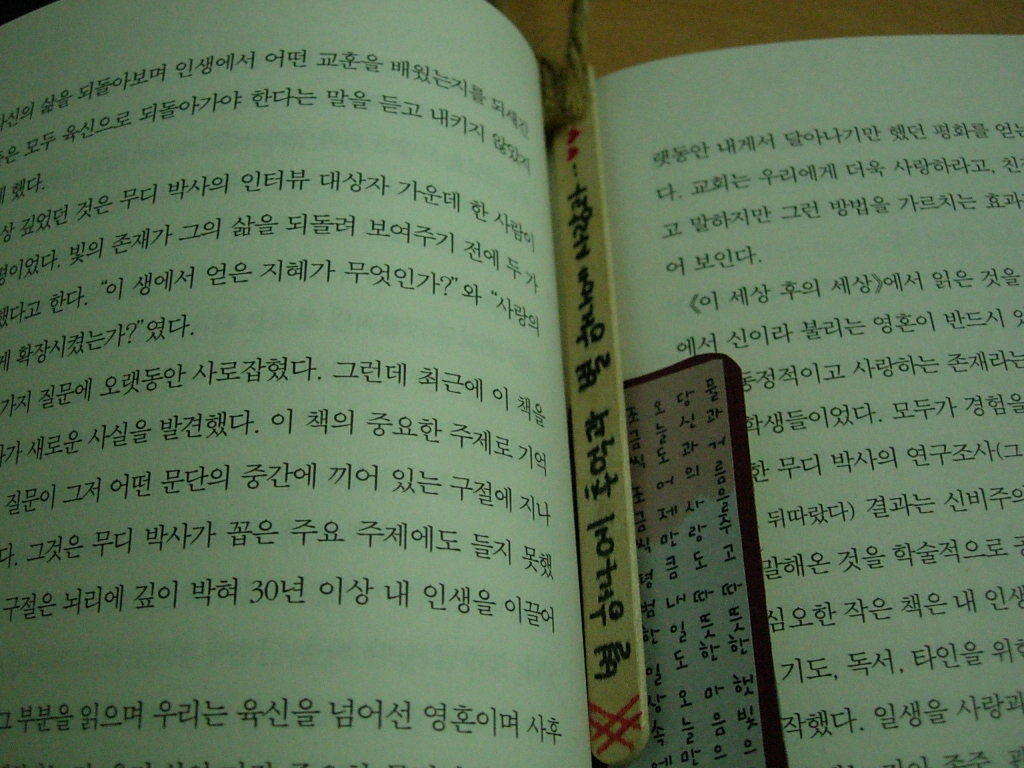 자신의 삶을 되돌아보며 인생에서 어떤 교훈을 배웠는지를 되새긴
은 모두 육신으로 되돌아가야 한다는 말을 듣고 내키지 않았지
게 했다.
상 깊었던 것은 무디 박사의 인터뷰 대상자 가운데 한 사람이
명이었다. 빛의 존재가 그의 삶을 되돌려 보여주기 전에 두 가
했다고 한다. “이 생에서 얻은 지혜가 무엇인가?”와 “사랑의
게 확장시켰는가?”였다.
가지 질문에 오랫동안 사로잡혔다. 그런데 최근에 이 책을
가 새로운 사실을 발견했다. 이 책의 중요한 주제로 기억
질문이 그저 어떤 문단의 중간에 끼어 있는 구절에 지나
다. 그것은 무디 박사가 꼽은 주요 주제에도 들지 못했
구절은 뇌리에 깊이 박혀 30년 이상 내 인생을 이끌어
그 부분을 읽으며 우리는 육신을 넘어선 영혼이며 사후
물과 거름을 주고 따뜻한 햇빛의
당신과의 사랑도 따뜻한 마음의
오늘도 어제만큼 내일도 오늘만
조금씩 조금씩 평범한 일상 속에
랫동안 내게서 달아나기만 했던 평화를 얻는
다. 교회는 우리에게 더욱 사랑하라고, 친
고 말하지만 그런 방법을 가르치는 효과
어 보인다.
《이 세상 후의 세상》에서 읽은 것을
에서 신이라 불리는 영혼이 반드시 있
동정적이고 사랑하는 존재라는
학생들이었다. 모두가 경험을
한 무디 박사의 연구조사(그
뒤따랐다) 결과는 신비주의
말해온 것을 학술적으로 공
심오한 작은 책은 내 인생
기도, 독서, 타인을 위한
작했다. 일생을 사랑과